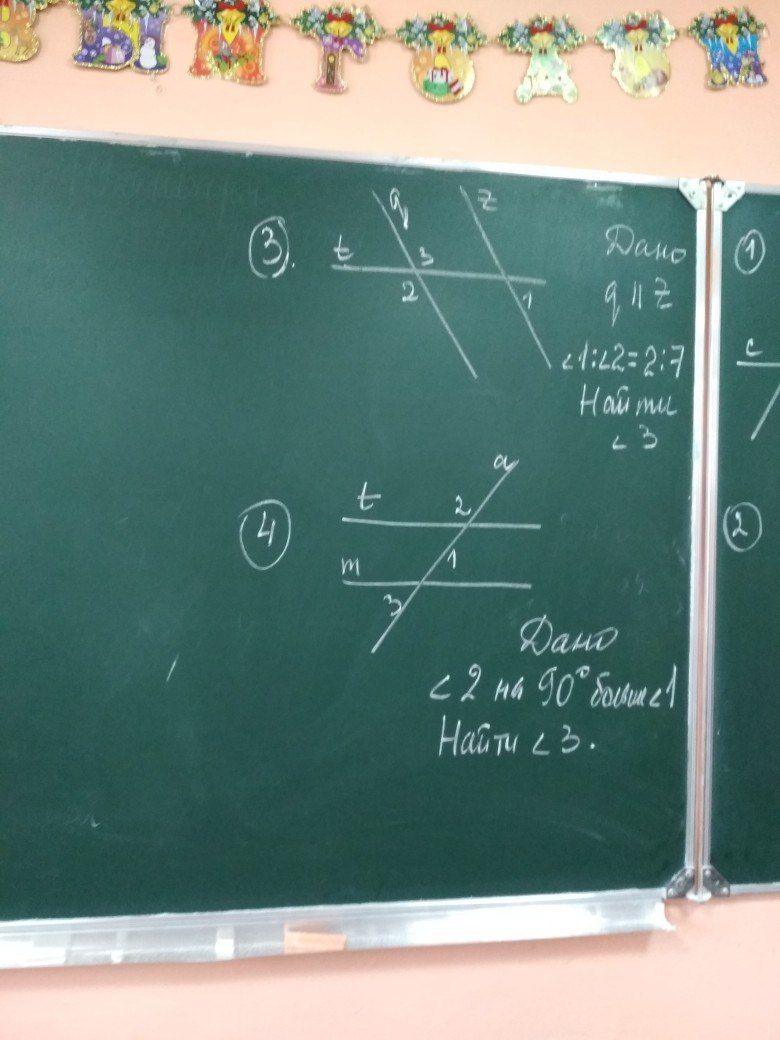 3.
q
z
t
3
2
1
Дано
q || z
<1:<2=2:7
Найти
<3
4
a
t
2
1
m
3
Дано
<2 на 90° больше <1
Найти <3.
1
c
2